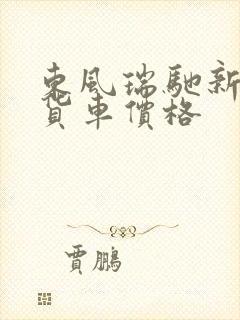 東風瑞馳新
貨車價格
賈鵬